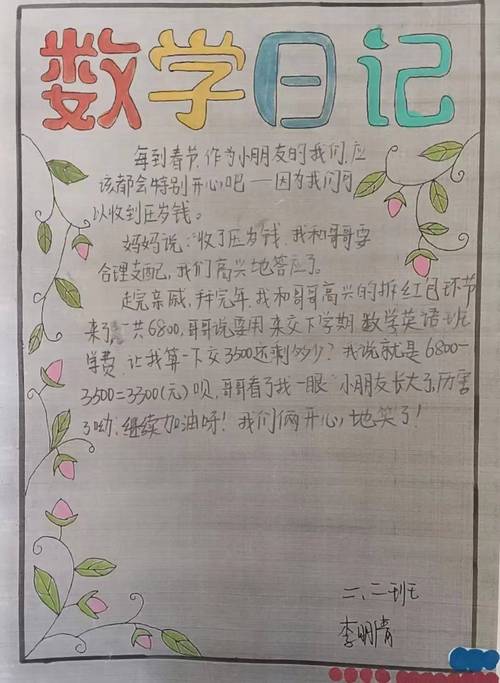 数学日记
每到春节,作为小朋友的我们,应
该都会特别开心吧——因为我们可
以收到压岁钱。
妈妈说:"收了压岁钱,我和哥哥要
合理支配,我们高兴地答应了。
走完亲戚,拜完年,我和哥哥高兴的拆红包环节
来了,一共6800,哥哥说要用来交下学期数学英语班
学费,让我算一下交3500还剩多少?我说就是6800-
3500=3300(元)呗,哥哥看了我一眼"小朋友长大了,厉害
了呦,继续加油呀!我们俩开心地笑了!
二、二班
李明倩